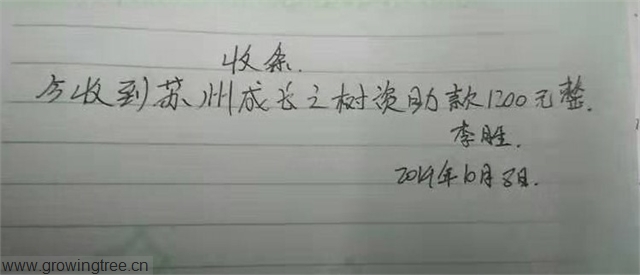 收条.
今收到苏州成长之树资助款1200元整.
李胜.
2019年10月8日.
www.growingtree.cn